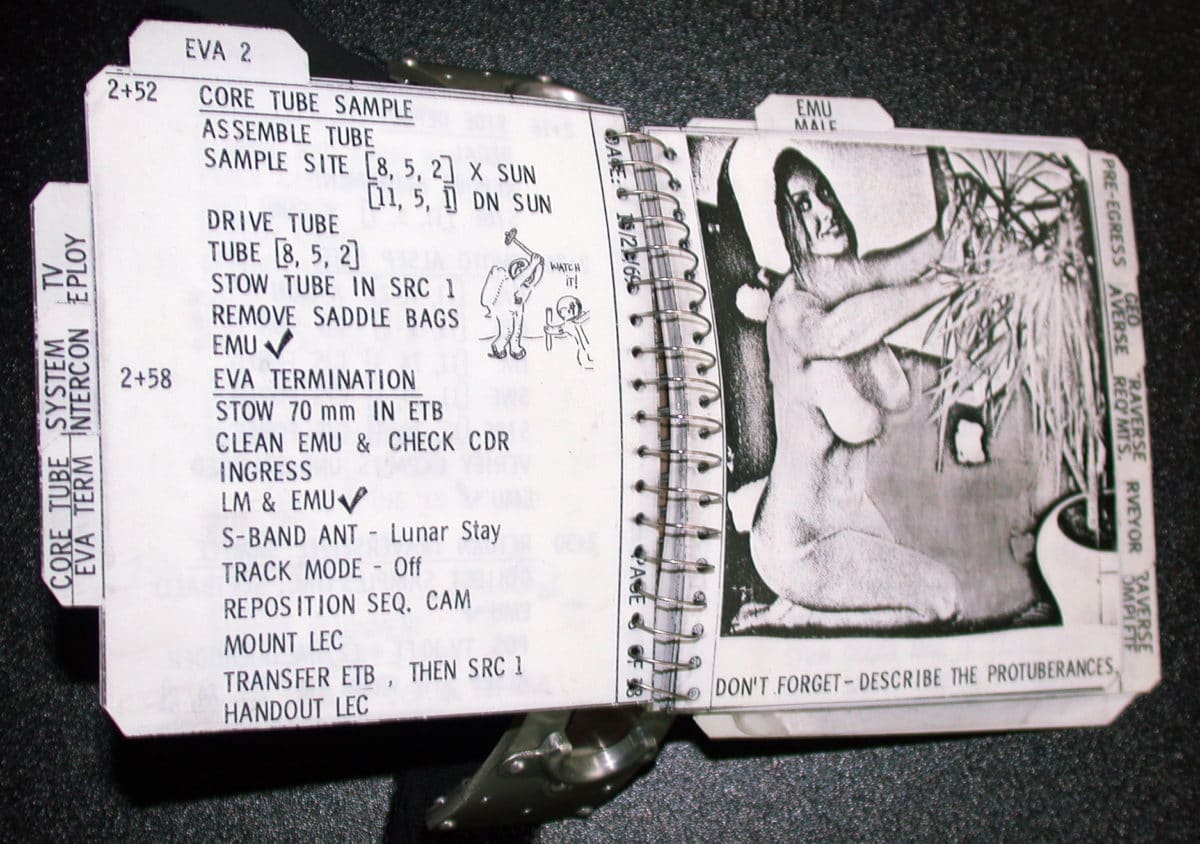 EVA 2
2+52 CORE TUBE SAMPLE
ASSEMBLE TUBE
SAMPLE SITE [8, 5, 2] X SUN
[11, 5, 1] DN SUN
DRIVE TUBE
TUBE [8, 5, 2]
STOW TUBE IN SRC 1
REMOVE SADDLE BAGS
EMU ✓
2+58 EVA TERMINATION
STOW 70 mm IN ETB
CLEAN EMU & CHECK CDR
INGRESS
LM & EMU ✓
S-BAND ANT - Lunar Stay
TRACK MODE - Off
REPOSITION SEQ. CAM
MOUNT LEC
TRANSFER ETB , THEN SRC 1
HANDOUT LEC
WATCH
IT!
CORE TUBE SYSTEM TV
EVA TERM INTERCON EPLOY
DATE:
PAGE OF
EMU
MALE
DON'T FORGET - DESCRIBE THE PROTUBERANCES
PRE-EGRESS
GEO
AVERSE
TRAVERSE
REQ'MTS.
RVEYOR
RAVERSE
OMPLETE